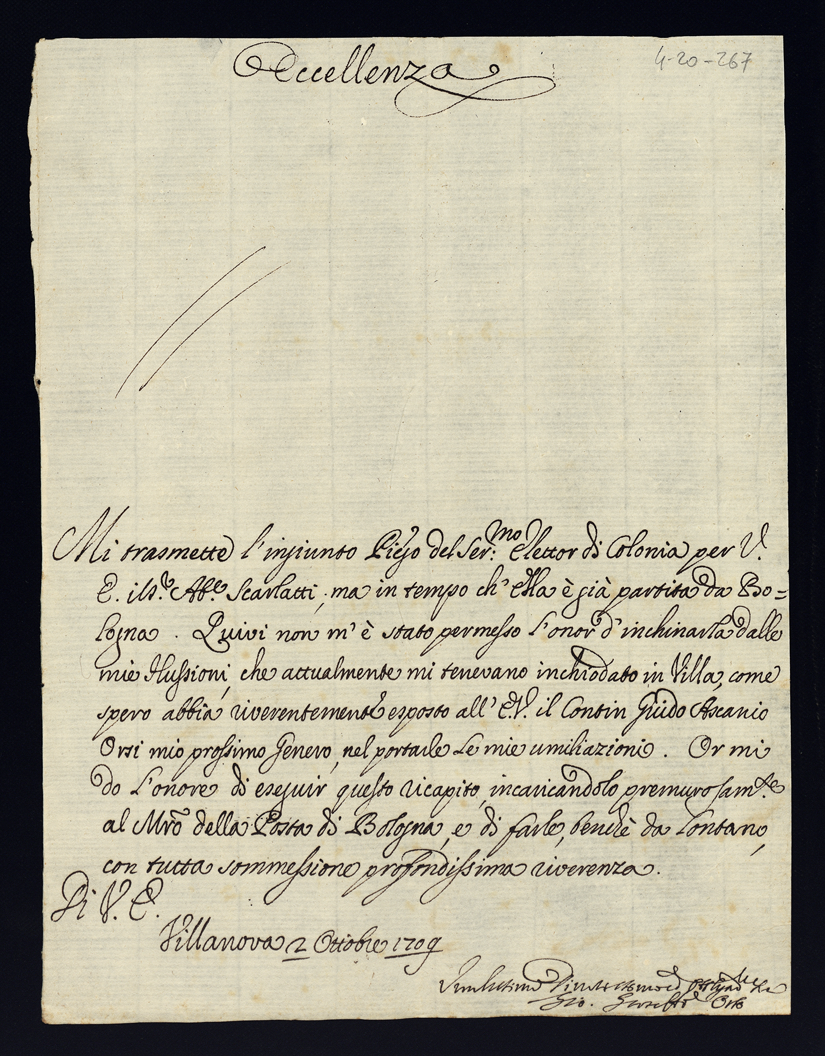 Eccellenza
4-20-267
Mi trasmette l'ingiunto Piego del Ser.mo Elettor di Colonia per V.
E. il S.r Ab.e Scarlatti, ma in tempo ch'Ella è già partita da Bo=
logna. Quivi non m'è stato permesso l'onor d'inchinarla dalle
mie flussioni, che actualmente mi tenevano inchiodato in Villa, come
spero abbia riverentemente esposto all'E.V. il Contin Guido Ascanio
Orsi mio prossimo Genero, nel portarle le mie umiliazioni. Or mi
do l'onore di eseguir questo ricapito, incaricandolo premurosam.te
al Mro della Posta di Bologna, e di farle, benchè da lontano,
con tutta sommessione profondissima riverenza.
Di V. E.
Villanova 2 Ottobre 1709
Gio.